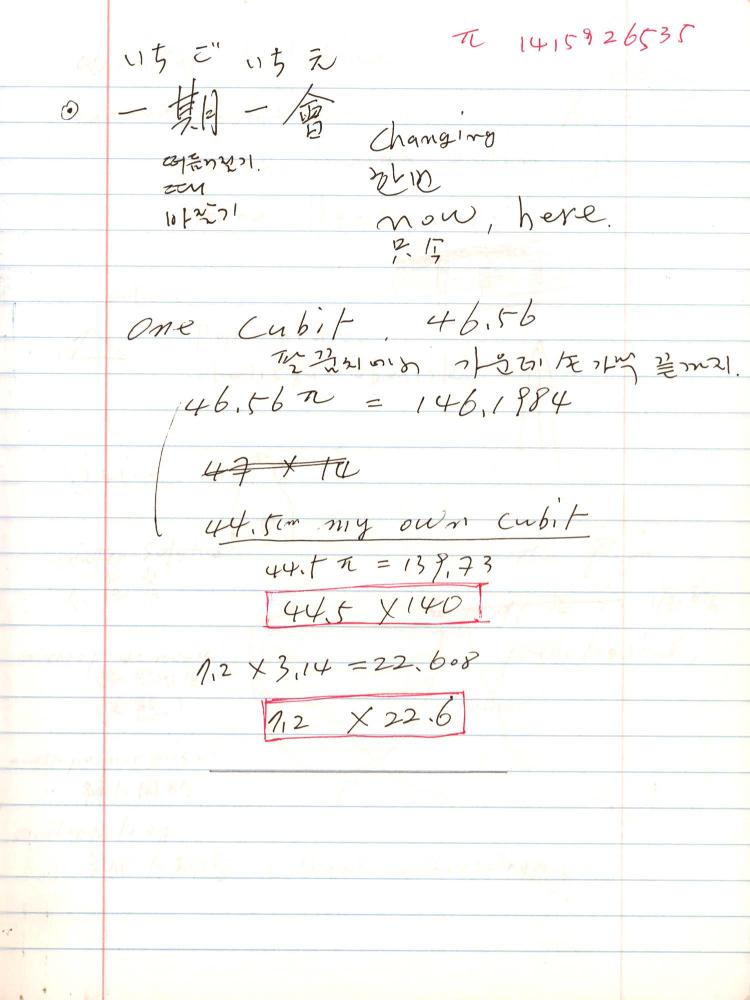 π 1415926535
いち ご いち え
一 期 一 會
Changing
때
한번
now, here.
One Cubit. 46.56
팔꿈치에서 가운데 손가락 끝까지.
46.56 π = 146.1984
44.5cm my own cubit
44.5 π = 139.73
44.5 × 140
7.2 × 3.14 = 22.608
7.2 × 22.6